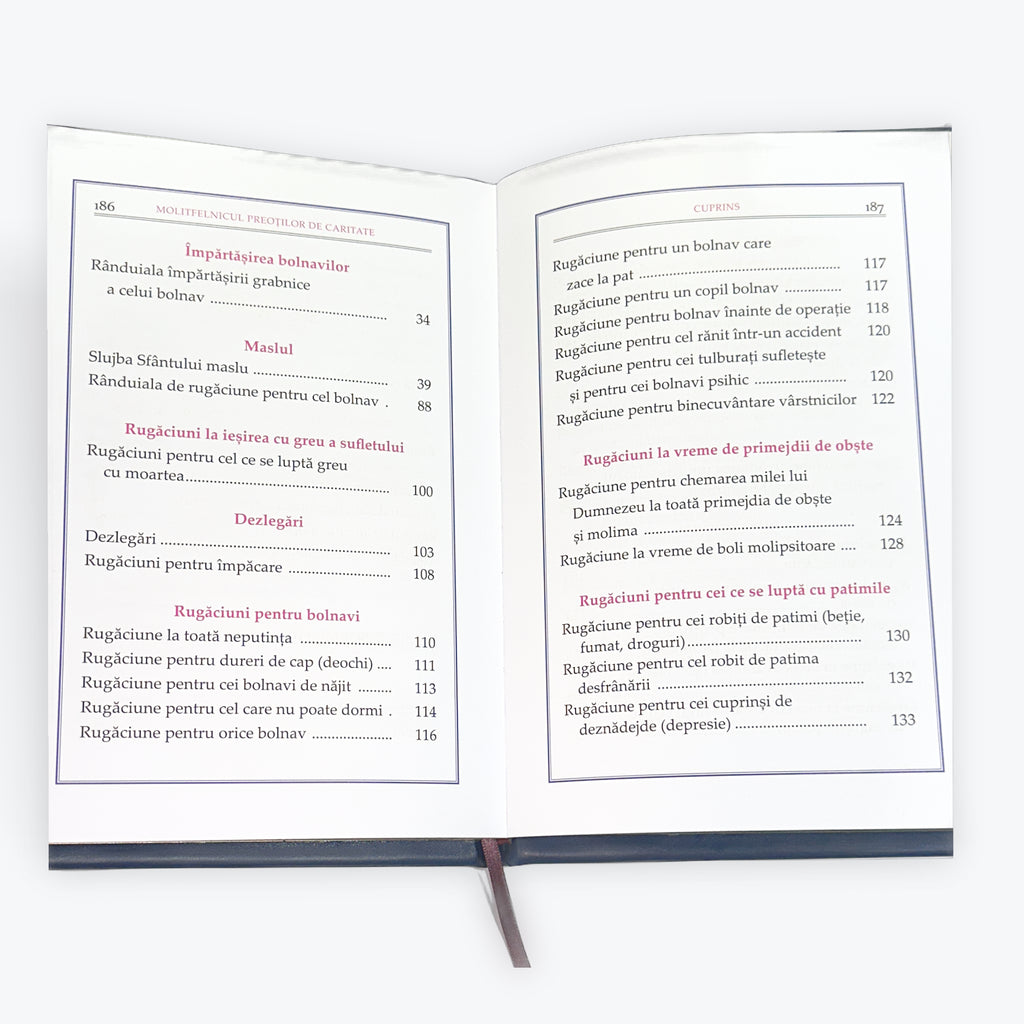 186 MOLITFELNICUL PREOȚILOR DE CARITATE
Împărtășirea bolnavilor
Rânduiala împărtășirii grabnice
a celui bolnav ........................................ 34
Maslul
Slujba Sfântului maslu ............................... 39
Rânduiala de rugăciune pentru cel bolnav . 88
Rugăciuni la ieșirea cu greu a sufletului
Rugăciuni pentru cel ce se luptă greu
cu moartea.............................................. 100
Dezlegări
Dezlegări ..................................................... 103
Rugăciuni pentru împăcare ....................... 108
Rugăciuni pentru bolnavi
Rugăciune la toată neputința ..................... 110
Rugăciune pentru dureri de cap (deochi) .... 111
Rugăciune pentru cei bolnavi de năjit ......... 113
Rugăciune pentru cel care nu poate dormi . 114
Rugăciune pentru orice bolnav .................. 116
CUPRINS 187
Rugăciune pentru un bolnav care
zace la pat .............................................. 117
Rugăciune pentru un copil bolnav .............. 117
Rugăciune pentru bolnav înainte de operație 118
Rugăciune pentru cel rănit într-un accident 120
Rugăciune pentru cei tulburați sufletește
și pentru cei bolnavi psihic ..................... 120
Rugăciune pentru binecuvântare vârstnicilor 122
Rugăciuni la vreme de primejdii de obște
Rugăciune pentru chemarea milei lui
Dumnezeu la toată primejdia de obște
și molima ................................................ 124
Rugăciune la vreme de boli molipsitoare .... 128
Rugăciuni pentru cei ce se luptă cu patimile
Rugăciune pentru cei robiți de patimi (beție,
fumat, droguri)........................................ 130
Rugăciune pentru cel robit de patima
desfrânării ............................................... 132
Rugăciune pentru cei cuprinși de
deznădejde (depresie) .............................. 133